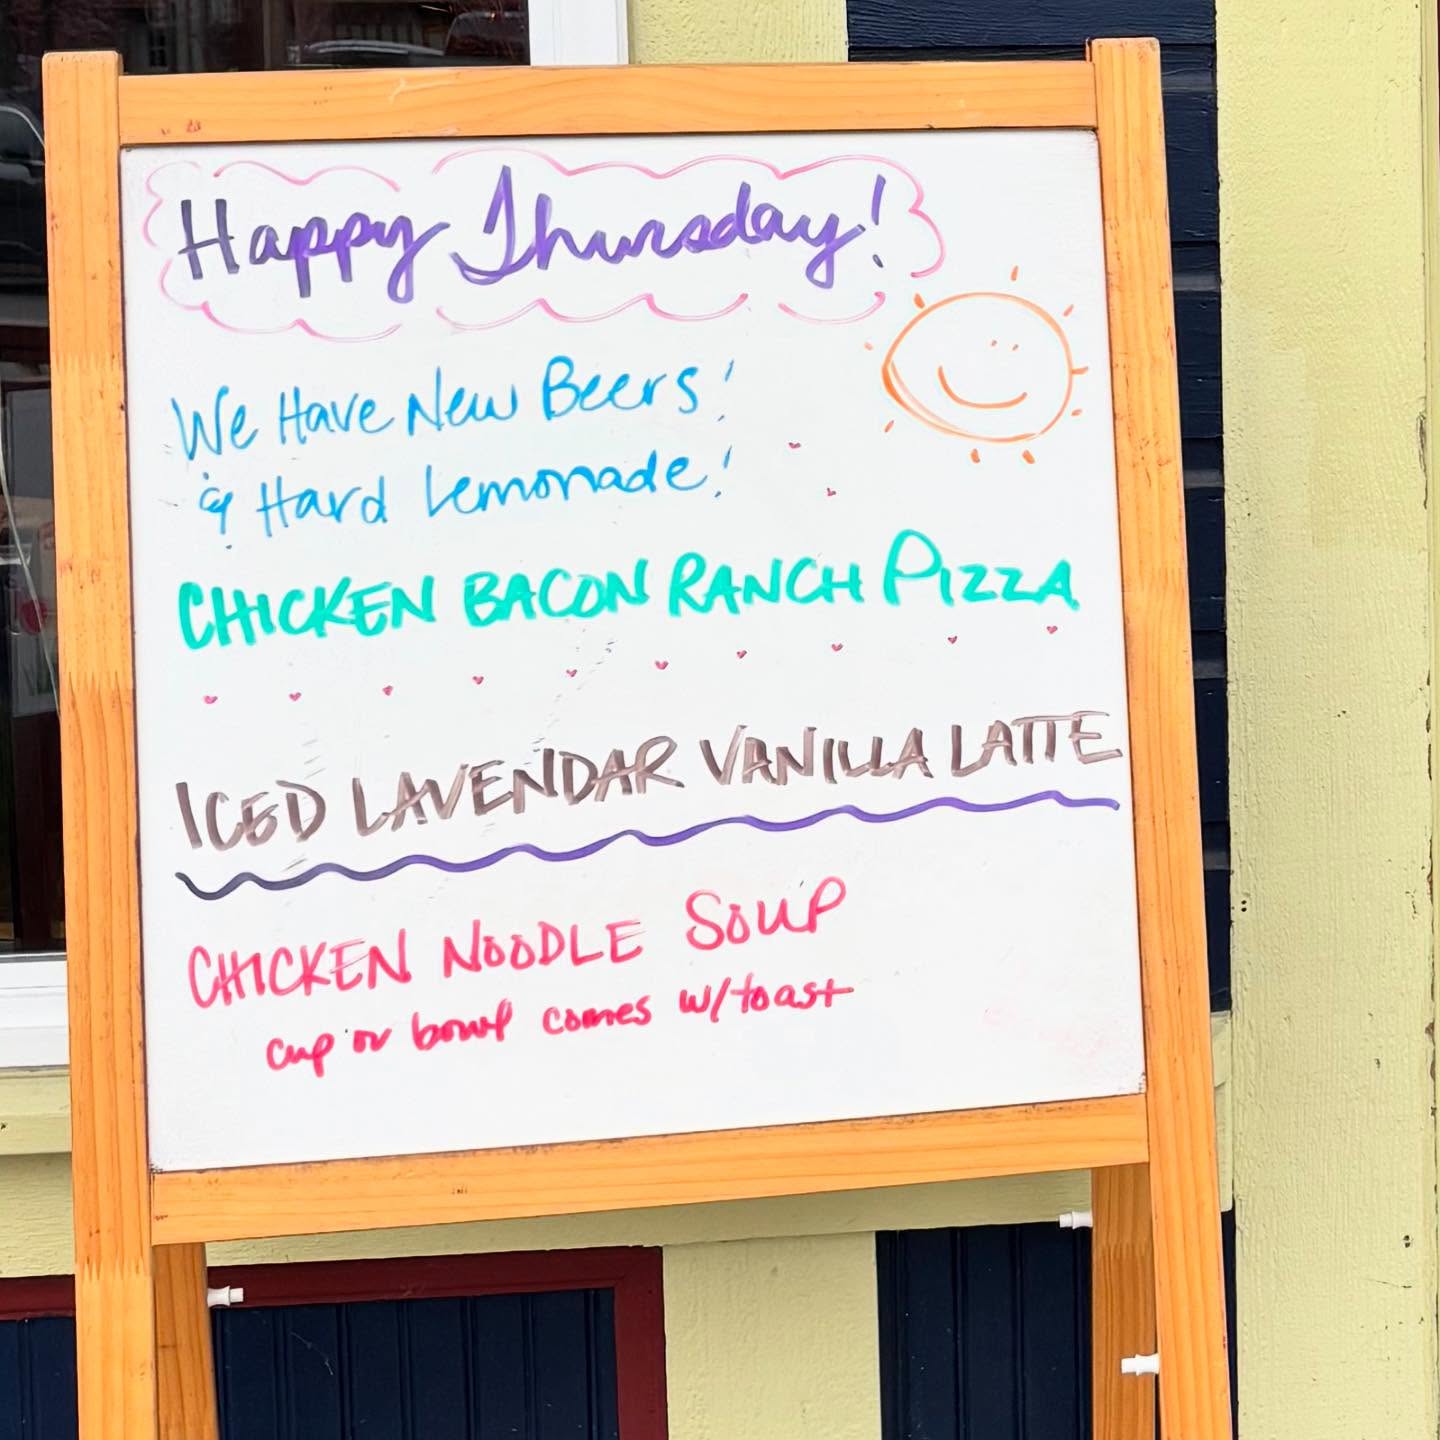 Happy Thursday!
We Have New Beers!
& Hard Lemonade!
CHICKEN BACON RANCH PIZZA
ICED LAVENDAR VANILLA LATTE
CHICKEN NOODLE SOUP
cup or bowl comes w/toast